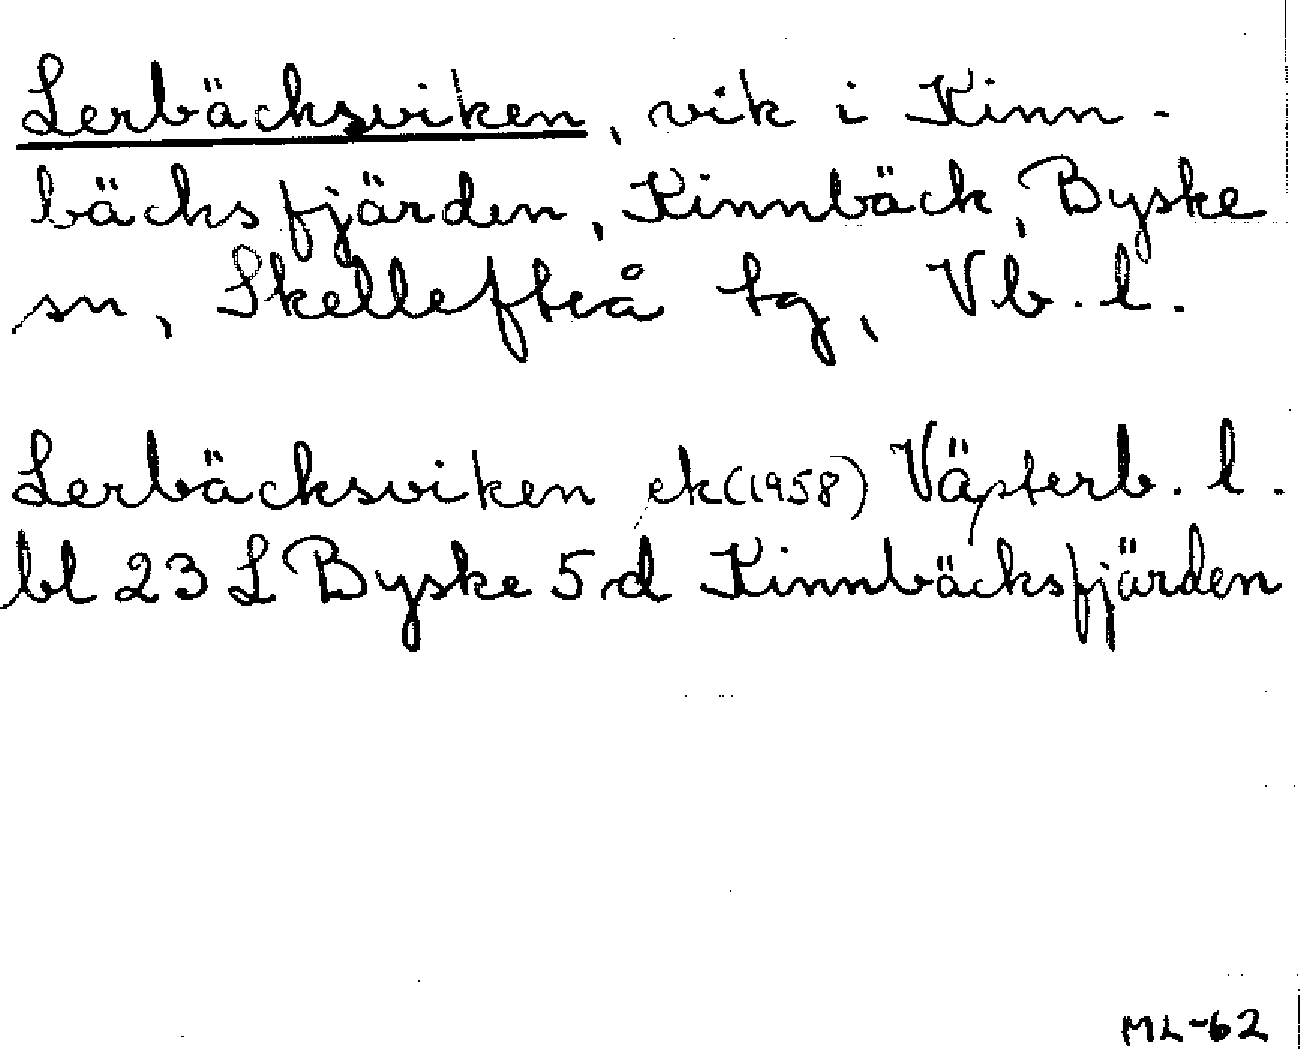 Lerbäcksviken, vik i Kinn-
bäcksfjärden, Kinnbäck, Byske
sn, Skellefteå tg, Vb. l.
Lerbäcksviken ek (1958) Västerb. l.
bl 23 L Byske 5 d Kinnbäcksfjärden
ML-62